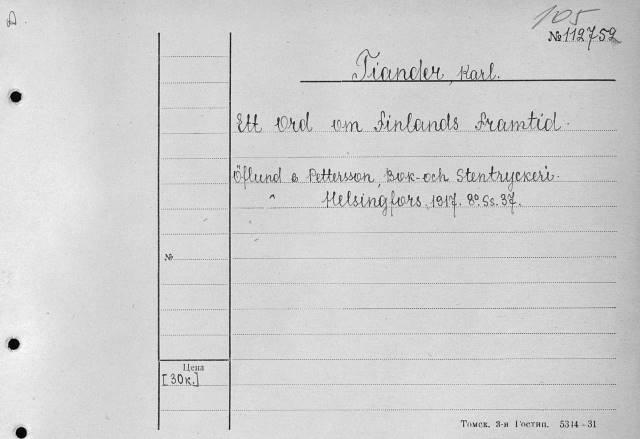 105
№112752
Tiander, Karl.
Ett Ord om Finlands Framtid.
Öflund & Pettersson, Bok-och Stentryckeri.
Helsingfors. 1917. 8º. Ss. 37.
№
Цена
[30к.]
Томск. 3-я Гостип. 5344-31